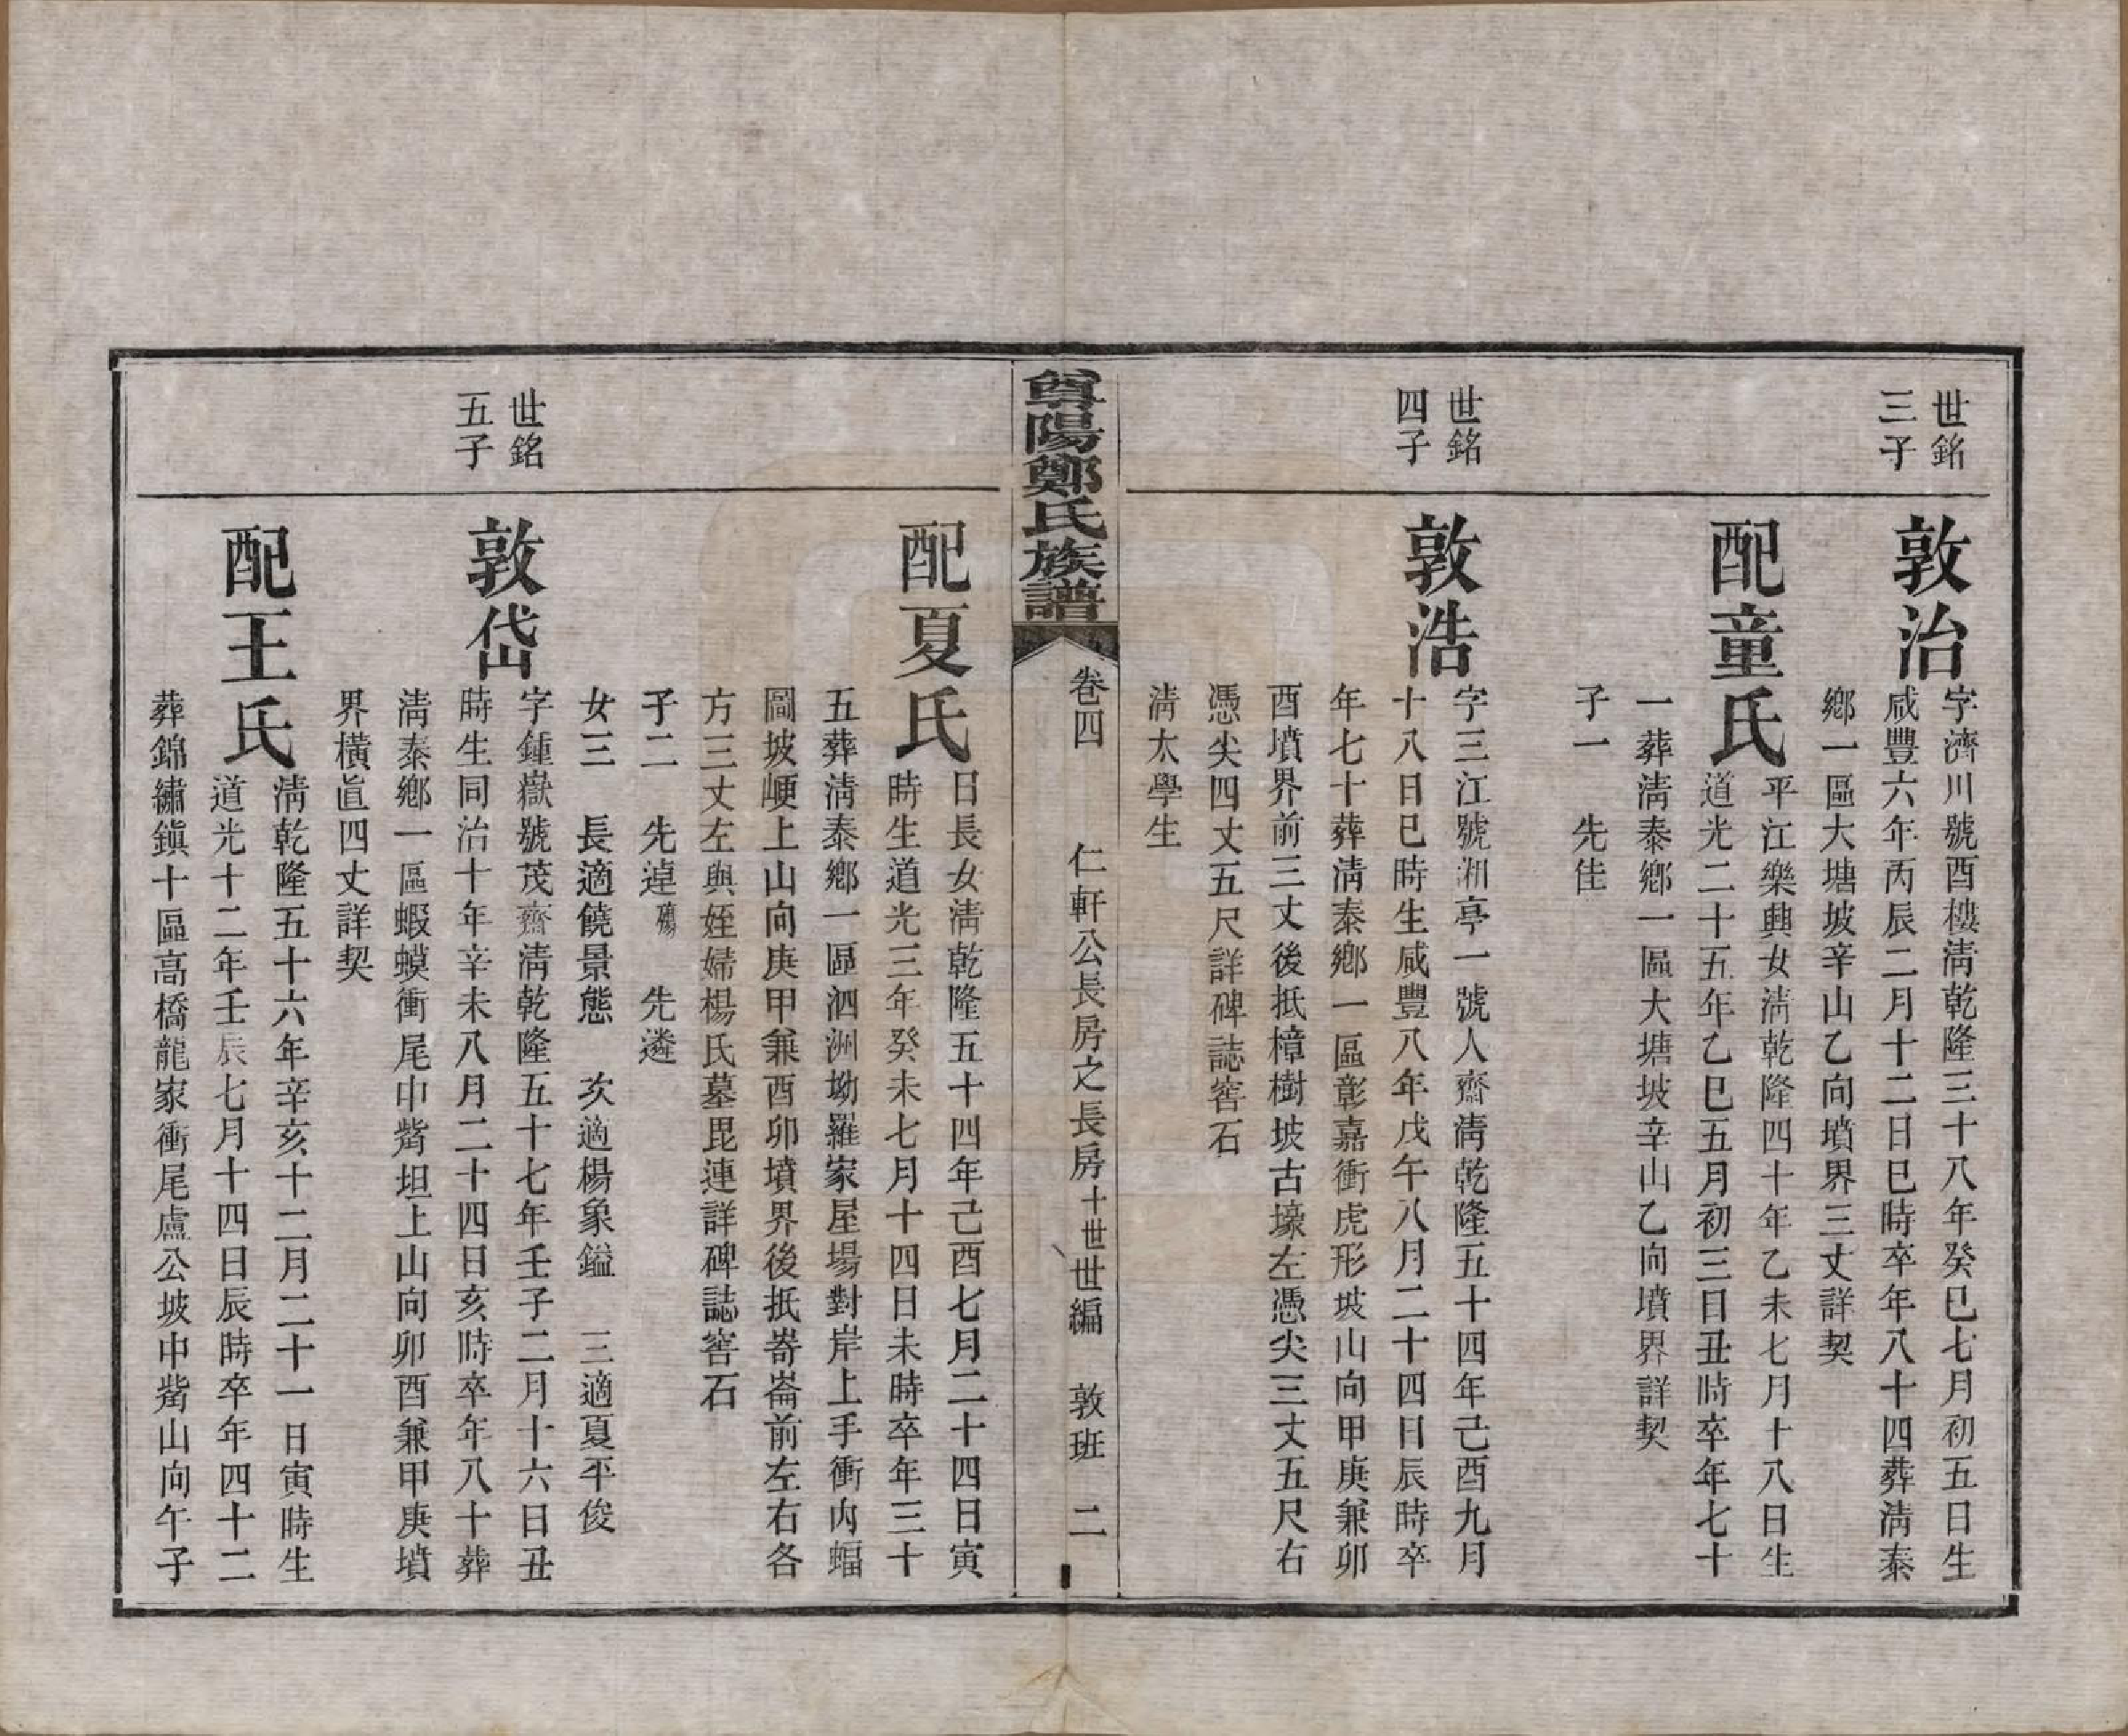 世銘
三子
敦治
字濟川號酉樓淸乾隆三十八年癸巳七月初五日生
咸豐六年丙辰二月十二日巳時卒年八十四葬淸泰
鄉一區大塘坡辛山乙向墳界三丈詳契
配童氏
平江樂興女淸乾隆四十年乙未七月十八日生
道光二十五年乙巳五月初三日丑時卒年七十
一葬淸泰鄉一區大塘坡辛山乙向墳界詳契
子一　先佳
世銘
四子
敦浩
字三江號湘亭一號人齋淸乾隆五十四年己酉九月
十八日巳時生咸豐八年戊午八月二十四日辰時卒
年七十葬淸泰鄉一區彰嘉衝虎形坡山向甲庚兼卯
酉墳界前三丈後抵樟樹坡古壕左憑尖三丈五尺右
憑尖四丈五尺詳碑誌窖石
淸太學生
尊陽鄭氏族譜
卷四　仁軒公長房之長房十世世編　敦班　二
配夏氏
日長女淸乾隆五十四年己酉七月二十四日寅
時生道光三年癸未七月十四日未時卒年三十
五葬淸泰鄉一區泗洲坳羅家屋場對岸上手衝內蝠
圖坡崾上山向庚甲兼酉卯墳界後抵嵜崙前左右各
方三丈左與姪婦楊氏墓毘連詳碑誌窖石
子二　先逴殤　先遴
女三　長適饒景態　次適楊象鎰　三適夏平俊
世銘
五子
敦岱
字鍾嶽號茂齋淸乾隆五十七年壬子二月十六日丑
時生同治十年辛未八月二十四日亥時卒年八十葬
淸泰鄉一區蝦蟆衝尾中觜坦上山向卯酉兼甲庚墳
界橫直四丈詳契
配王氏
淸乾隆五十六年辛亥十二月二十一日寅時生
道光十二年壬辰七月十四日辰時卒年四十二
葬錦繡鎭十區高橋龍家衝尾盧公坡中觜山向午子